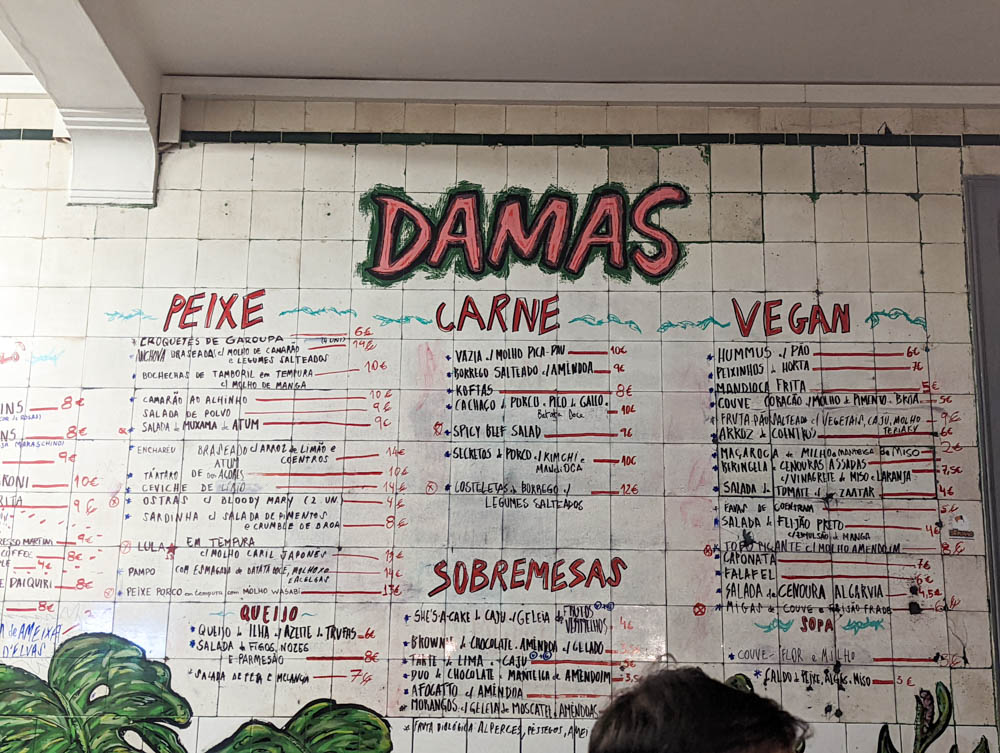 DAMAS
PEIXE
CROQUETES DE GAROUPA 6€
ANCHOVA BRASEADA c/ MOLHO DE CAMARÃO 14€
e LEGUMES SALTEADOS
BOCHECHAS DE TAMBORIL em TEMPURA 10€
c/ MOLHO DE MANGA
CAMARÃO AO ALHINHO 10€
SALADA DE POLVO 9€
SALADA de MUXAMA de ATUM 9€
ENCHARÉU BRASEADO c/ ARROZ DE LIMÃO e 14€
COENTROS
TÁRTARO ATUM DOS AÇORES 10€
CEVICHE DE 14€
OSTRAS c/ BLOODY MARY (2 UN)
SARDINHA c/ SALADA DE PIMENTOS
e CRUMBLE DE BROA 8€
LULA EM TEMPURA
c/ MOLHO CARIL JAPONÊS
PAMPO COM ESMAGADA DE BATATA DOCE, MOLHO 14€
PEIXE PORCO em tempura com MOLHO WASABI 13€
QUEIJO
QUEIJO da ILHA c/ AZEITE de TRUFAS 6€
SALADA DE FIGOS, NOZES
E PARMESÃO 8€
SALADA DE FETA e MELANCIA 7€
CARNE
VAZIA c/ MOLHO PICA-PAU 10€
BORREGO SALTEADO c/ AMÊNDOA 9€
KOFTAS 8€
CACHAÇO de PORCO, PICO de GALLO,
Batata Doce 10€
SPICY BEEF SALAD 9€
SECRETOS de PORCO c/ KIMCHI e 10€
MANDIOCA
COSTELETAS de BORREGO c/ 12€
LEGUMES SALTEADOS
SOBREMESAS
SHE'S-A-CAKE de CAJU c/ GELEIA de FRUTOS 4€
VERMELHOS
BROWNIE de CHOCOLATE, AMÊNDOA c/ GELADO
TARTE de LIMA e CAJU
DUO de CHOCOLATE e MANTEIGA de AMENDOIM 3,5€
AFOGATTO c/ AMÊNDOA
MORANGOS c/ GELEIA de MOSCATEL e AMÊNDOAS
FRUTA BIOLÓGICA ALPERCES, PÊSSEGOS,
VEGAN
HUMMUS c/ PÃO 6€
PEIXINHOS da HORTA 7€
MANDIOCA FRITA 5€
COUVE CORAÇÃO c/ MOLHO de PIMENTO e BROA 5€
FRUTA-PÃO SALTEADA c/ VEGETAIS, CAJU, MOLHO 9€
TERIAKI
ARROZ de COENTROS 6€
MAÇAROCA de MILHO e MANTEIGA de MISO 2€
BERINGELA e CENOURAS ASSADAS 7,5€
c/ VINAGRETE de MISO e LARANJA
SALADA de TOMATE c/ ZAATAR 4€
FAVAS DE COENTRADA 5€
SALADA de FEIJÃO PRETO 4€
c/ EMULSÃO de MANGA
TOFU PICANTE c/ MOLHO AMENDOIM 8€
CAPONATA 7€
FALAFEL 6€
SALADA de CENOURA ALGARVIA 4,5€
MIGAS de COUVE e FEIJÃO FRADE
SOPA
COUVE-FLOR e MILHO
CALDO de PEIXE, ALGAS, MISO 5€
8€
8€
9€
RONI 10€
9€
9€
COFFEE 8€
4€
DAIQUIRI 8€
8€
de AMEIXA
D'ELVAS